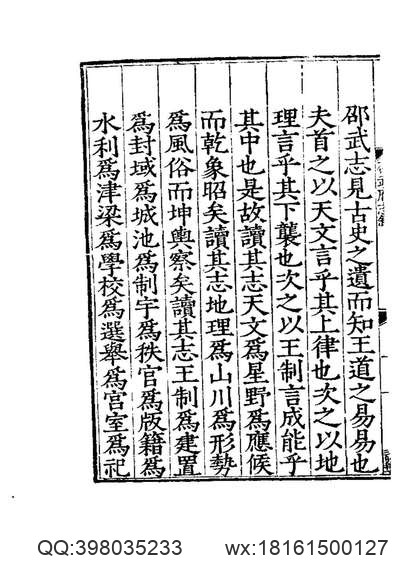 邵武志見古史之遺而知王道之易易也
夫首之以天文言乎其上律也次之以地
理言乎其下襲也次之以王制言成能乎
其中也是故讀其志天文為星野為應候
而乾象昭矣讀其志地理為山川為形勢
為風俗而坤輿察矣讀其志王制為建置
為封域為城池為制宇為秩官為版籍為
水利為津梁為學校為選舉為宫室為祀
QQ:398035233 wx:18161500127